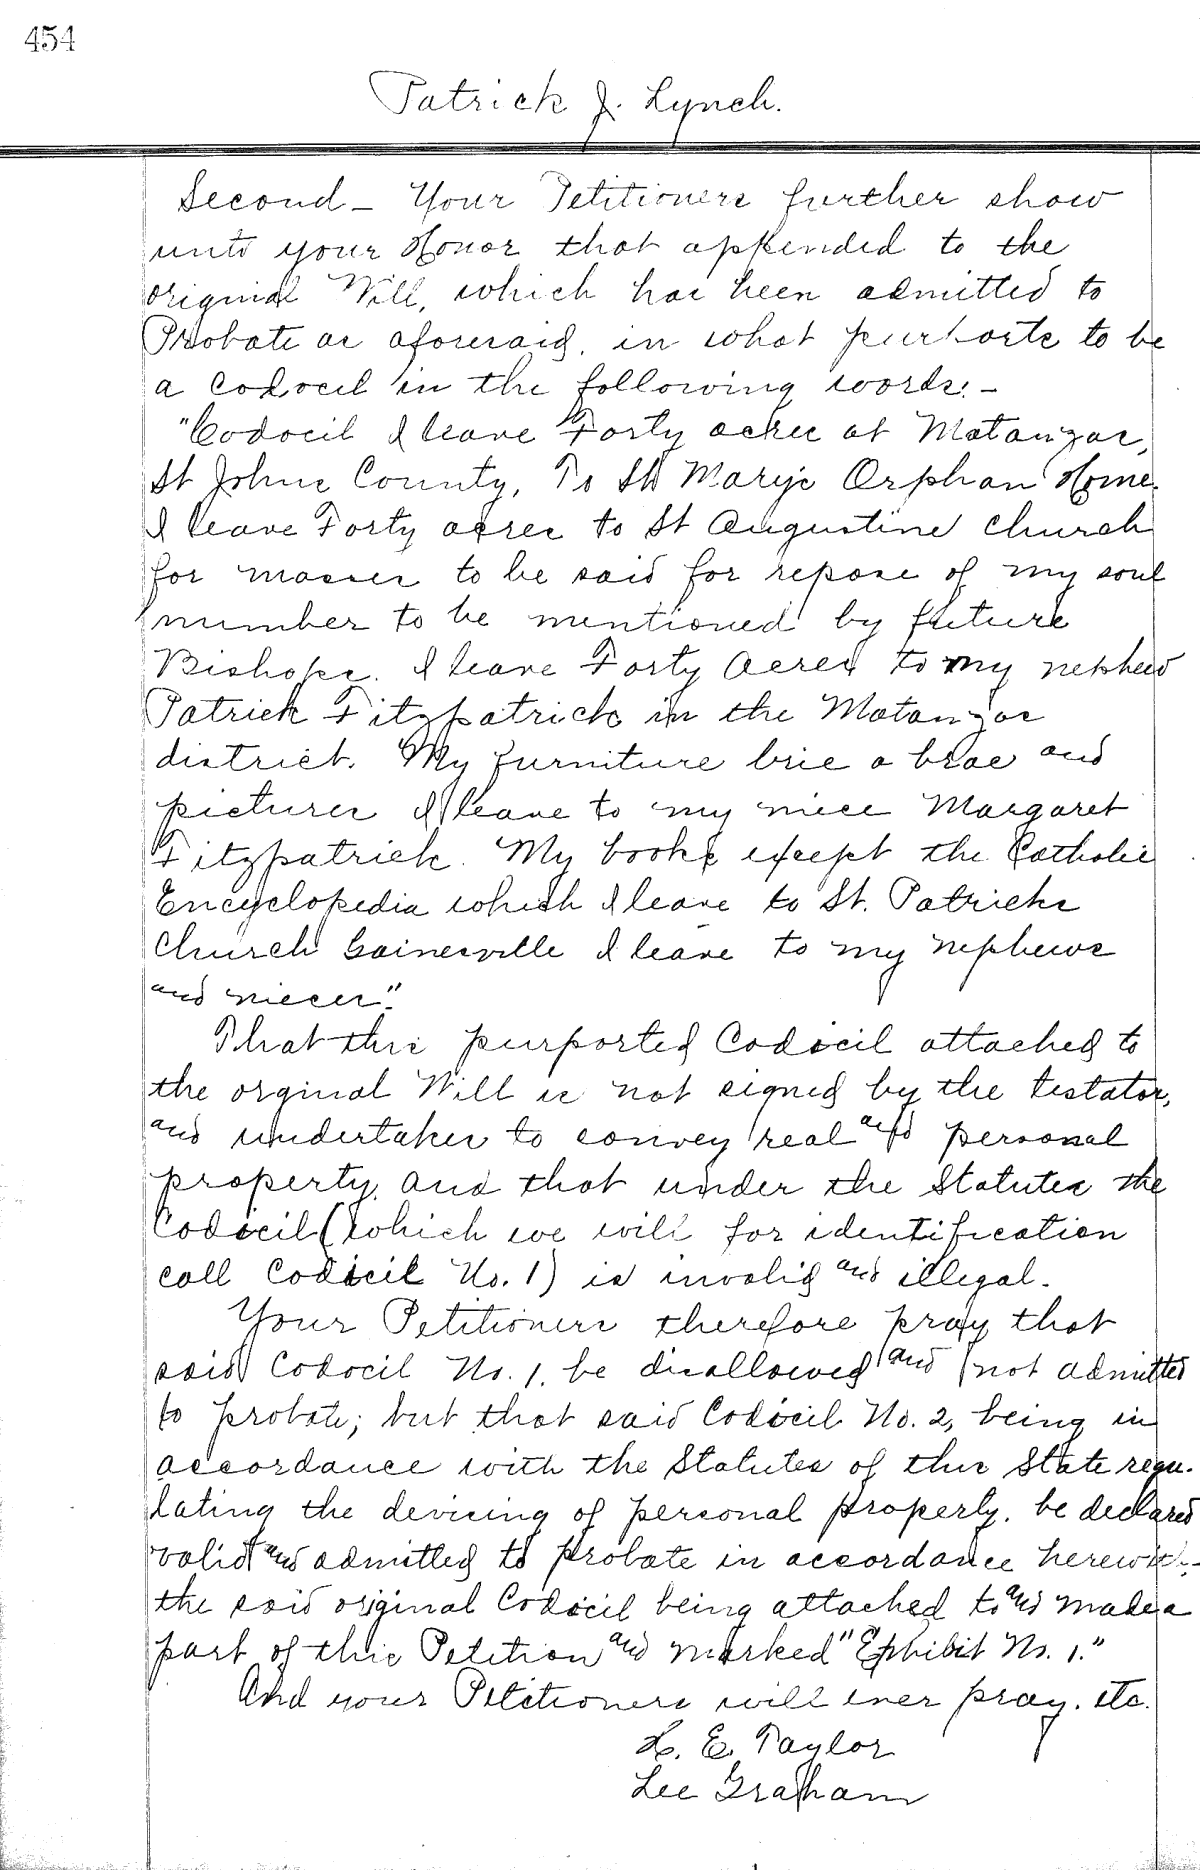 454
Patrick J. Lynch.
Second - Your Petitioners further show
unto your Honor that appended to the
original Will, which has been admitted to
Probate as aforesaid, in what purports to be
a Codocil in the following words: -
"Codocil I leave Forty acres at Matanzas,
St Johns County, To St Marys Orphan Home.
I leave Forty acres to St Augustine Church
for masses to be said for repose of my soul
number to be mentioned by future
Bishops. I leave Forty Acres to my nephew
Patrick Fitzpatrick in the Matanzas
district. My furniture bric a brac and
pictures I leave to my niece Margaret
Fitzpatrick. My books except the Catholic
Encyclopedia which I leave to St. Patricks
Church Gainesville I leave to my nephews
and nieces".
That this purported Codocil attached to
the orginal Will is not signed by the testator,
and undertakes to convey real and personal
property, and that under the Statutes the
Codocil (which we will for identification
call Codicil No. 1) is invalid and illegal.
Your Petitioners therefore pray that
said Codocil No. 1, be disallowed and not admitted
to probate; but that said Codocil No. 2, being in
accordance with the Statutes of this State regu-
lating the devising of personal property, be declared
valid and admitted to probate in accordance herewith,-
the said original Codocil being attached to and made a
part of this Petition and marked "Exhibit No. 1."
And your Petitioners will ever pray. etc.
L. E. Taylor
Lee Graham